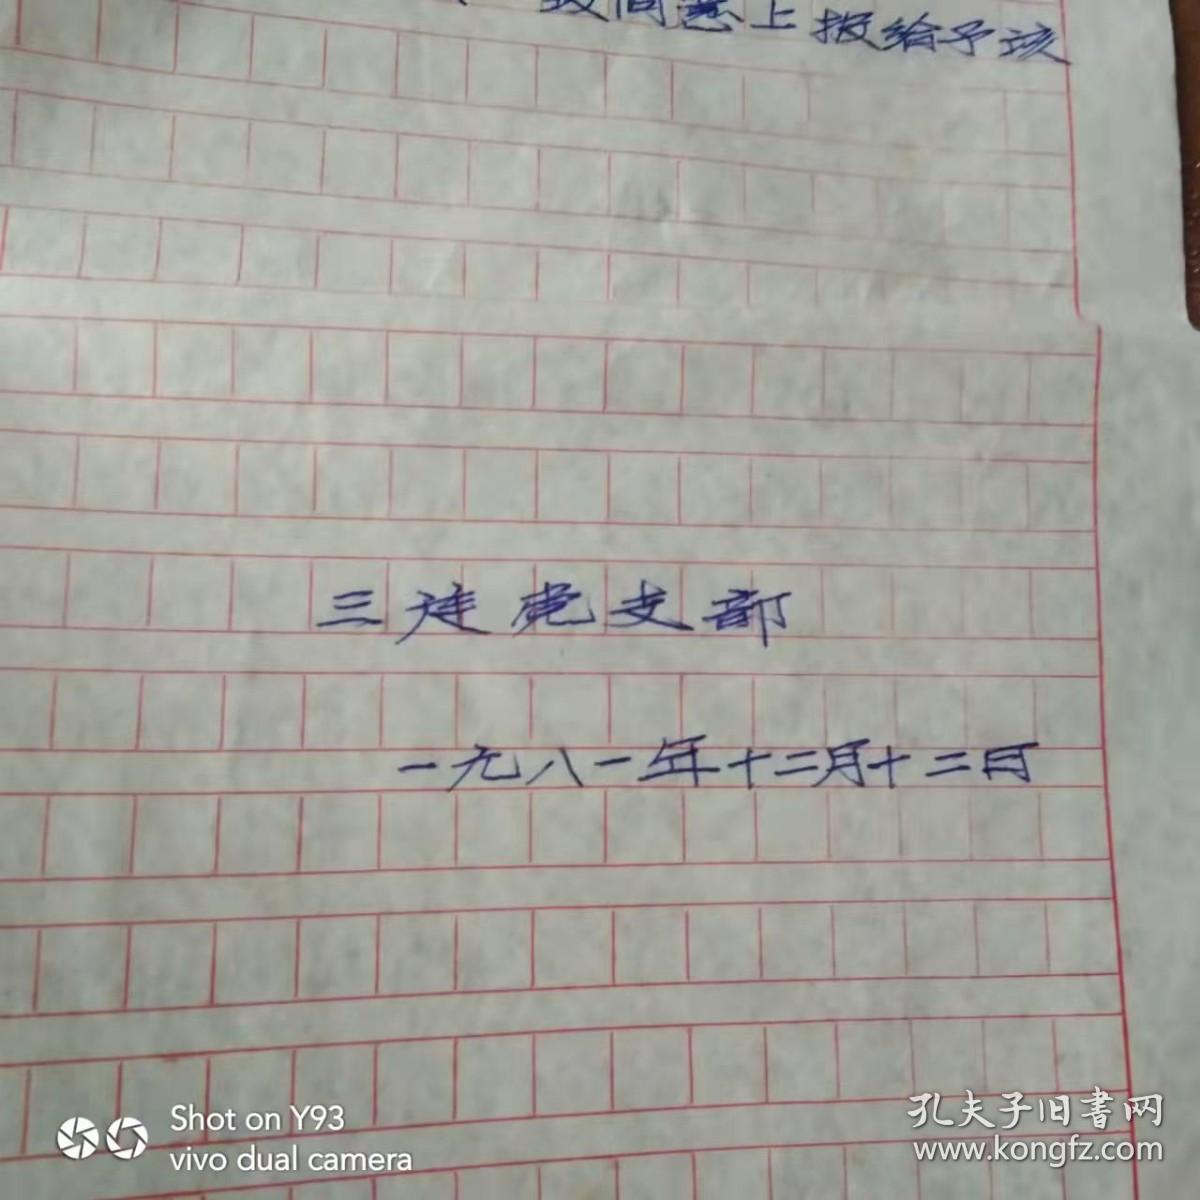 致同意上报给予该
三连党支部
一九八一年十二月十二日
Shot on Y93
vivo dual camera
孔夫子旧書网
www.kongfz.com